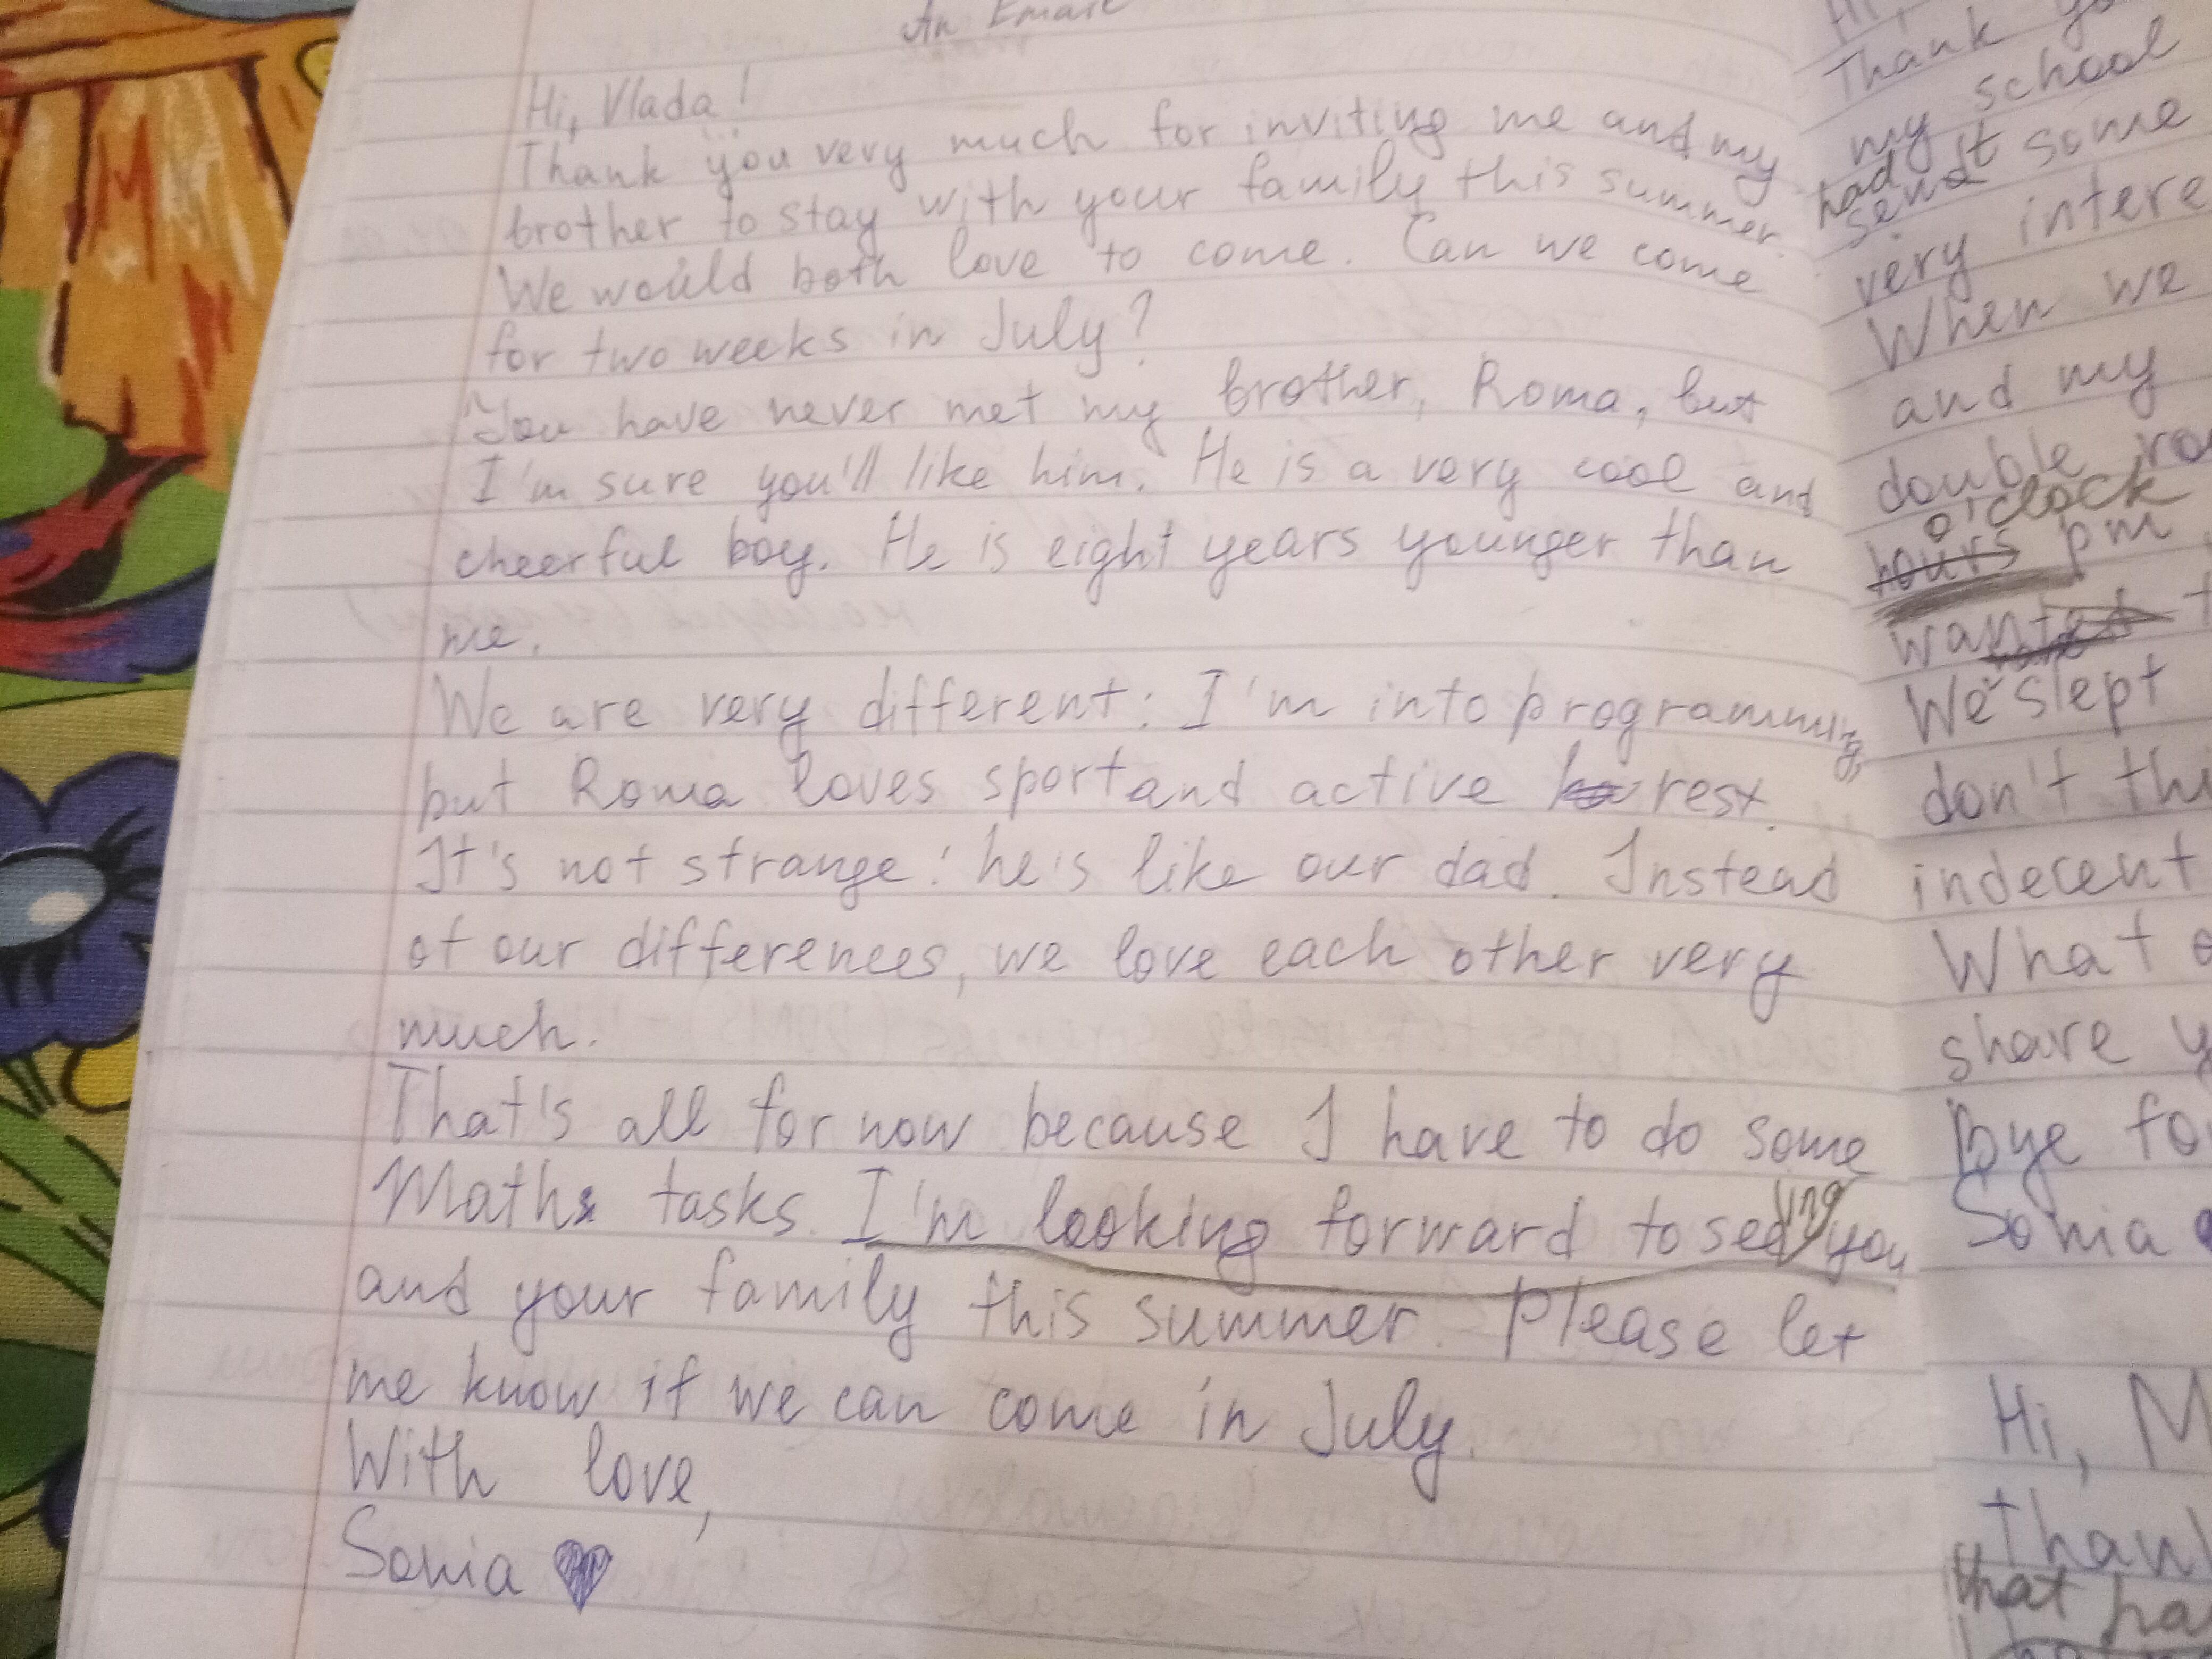 An Email
Hi, Vlada!
Thank you very much for inviting me and my
brother to stay with your family this summer.
We would both love to come. Can we come
for two weeks in July?
You have never met my brother, Roma, but
I'm sure you'll like him. He is a very cool and
cheerful boy. He is eight years younger than
me.
We are very different: I'm into programming,
but Roma loves sport and active rest.
It's not strange: he's like our dad. Instead
of our differences, we love each other very
much.
That's all for now because I have to do some
Maths tasks. I'm looking forward to seeing you
and your family this summer. Please let
me know if we can come in July.
With love,
Sonia
Thank
my school
my
had
sent some
very intere
When we
and my
double
o'clock
hours pm
We slept
don't thi
indecent
What
share y
Bye fo
Sonia
Hi, M
Thank
that ha